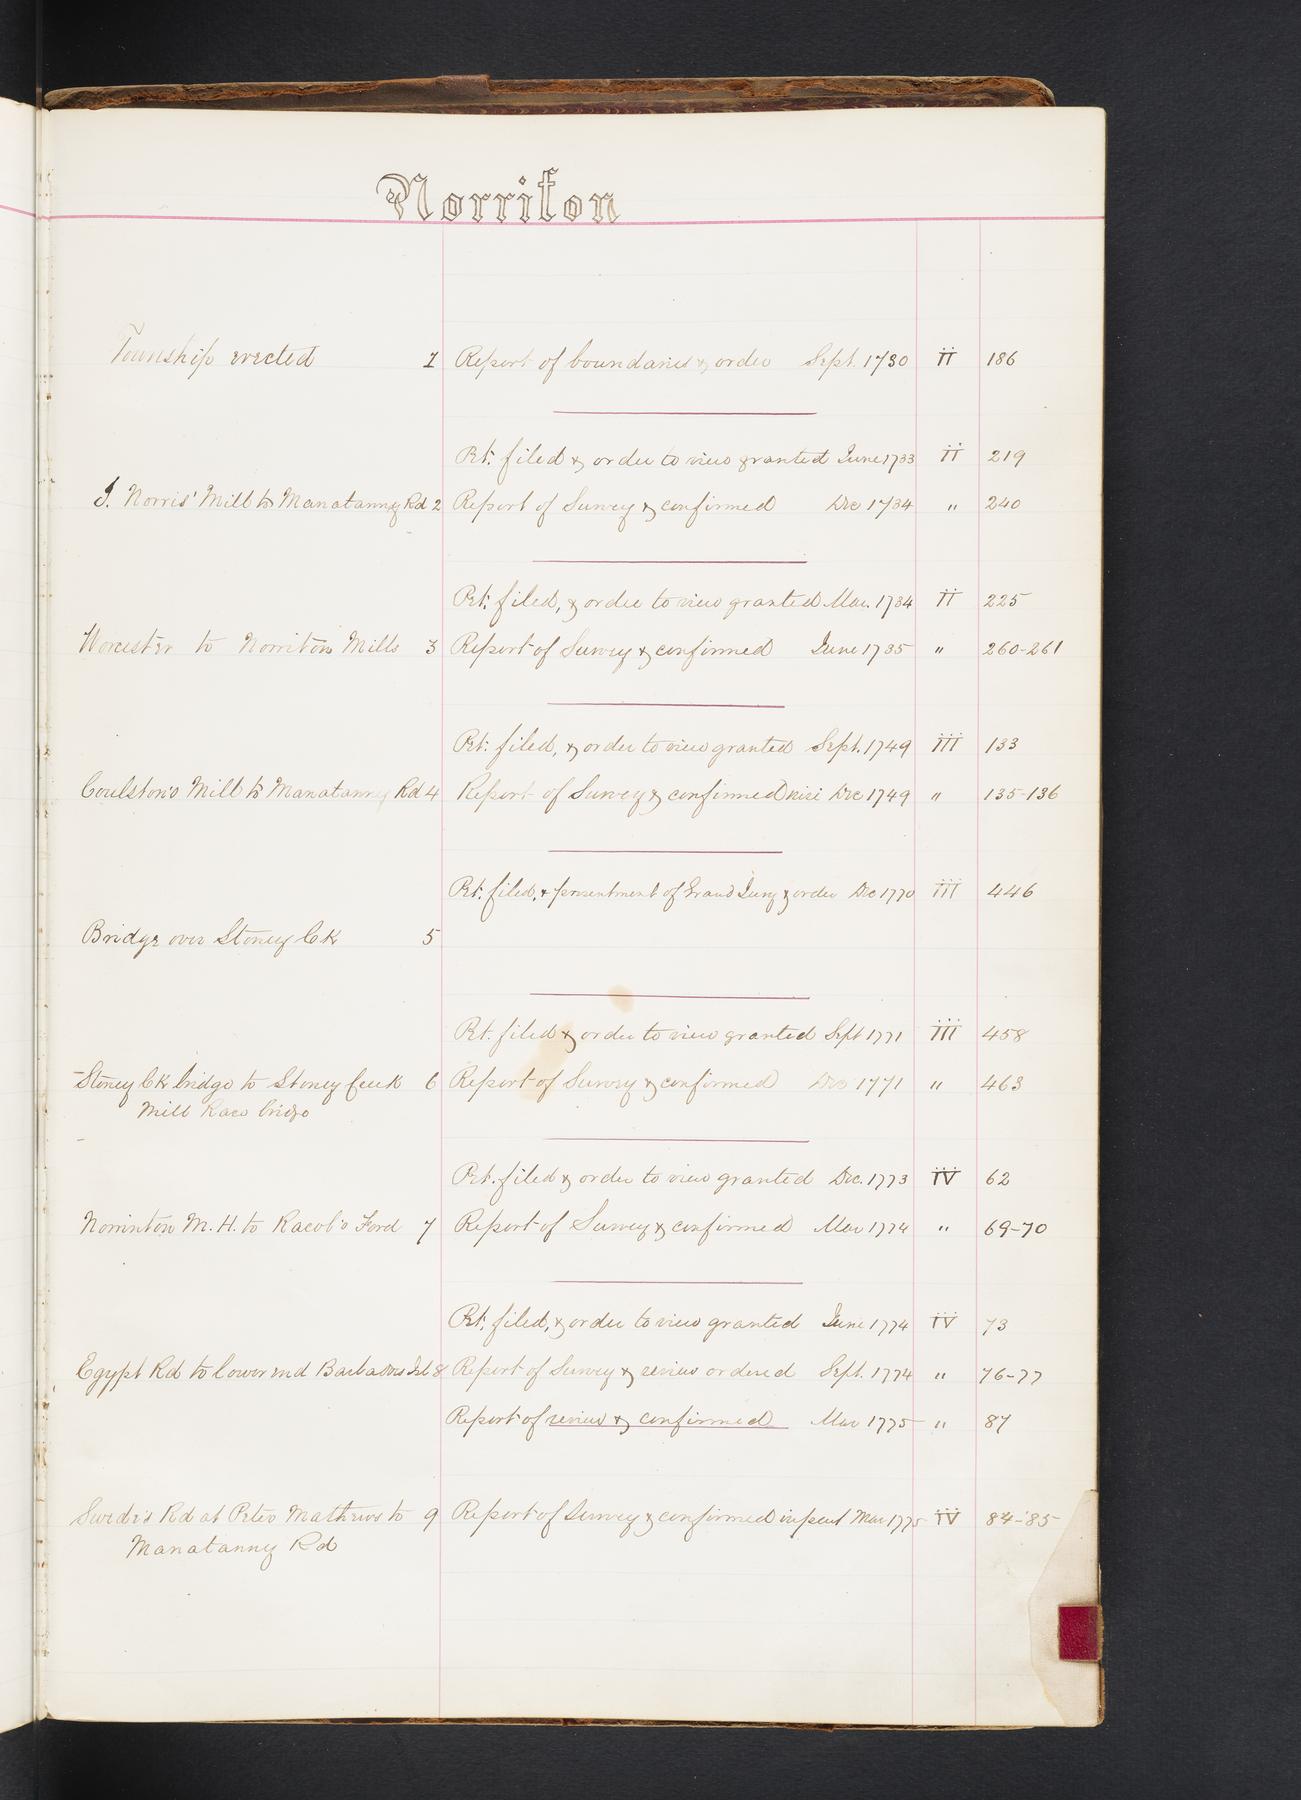 Norriton
Township erected 1 Report of boundaries & order Sept. 1730 II 186
Pet. filed & order to view granted June 1733 II 219
I. Norris' Mill to Manatanny Rd 2 Report of Survey & confirmed Dec 1734 " 240
Pet. filed, & order to view granted Mar. 1734 II 225
Worcester to Norriton Mills 3 Report of Survey & confirmed June 1735 " 260-261
Pet. filed, & order to view granted Sept. 1749 III 133
Coulston's Mill to Manatanny Rd 4 Report of Survey & confirmed nisi Dec 1749 " 135-136
Pet. filed, & presentment of Grand Jury & order Dec 1770 III 446
Bridge over Stoney Ck 5
Pet. filed & order to view granted Sept 1771 III 458
Stoney Ck bridge to Stoney Creek 6 Report of Survey & confirmed Dec 1771 " 463
Mill Race bridge
Pet. filed & order to view granted Dec. 1773 IV 62
Norrinton M. H. to Racob's Ford 7 Report of Survey & confirmed Mar 1774 " 69-70
Pet. filed, & order to view granted June 1774 IV 73
Egypt Rd to lower end Barbadoes Isl 8 Report of Survey & review ordered Sept. 1774 " 76-77
Report of review & confirmed Mar 1775 " 87
Swede's Rd at Peter Mathews to 9 Report of Survey & confirmed in part Mar 1775 IV 84-'85
Manatanny Rd